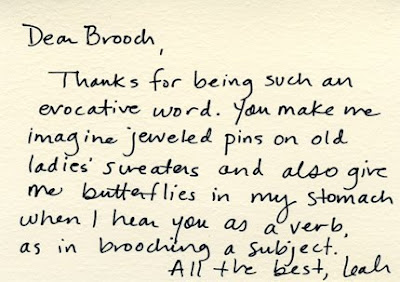 Dear Brooch,
Thanks for being such an
evocative word. You make me
imagine jeweled pins on old
ladies' sweaters and also give
me butterflies in my stomach
when I hear you as a verb,
as in brooching a subject.
All the best, Leah